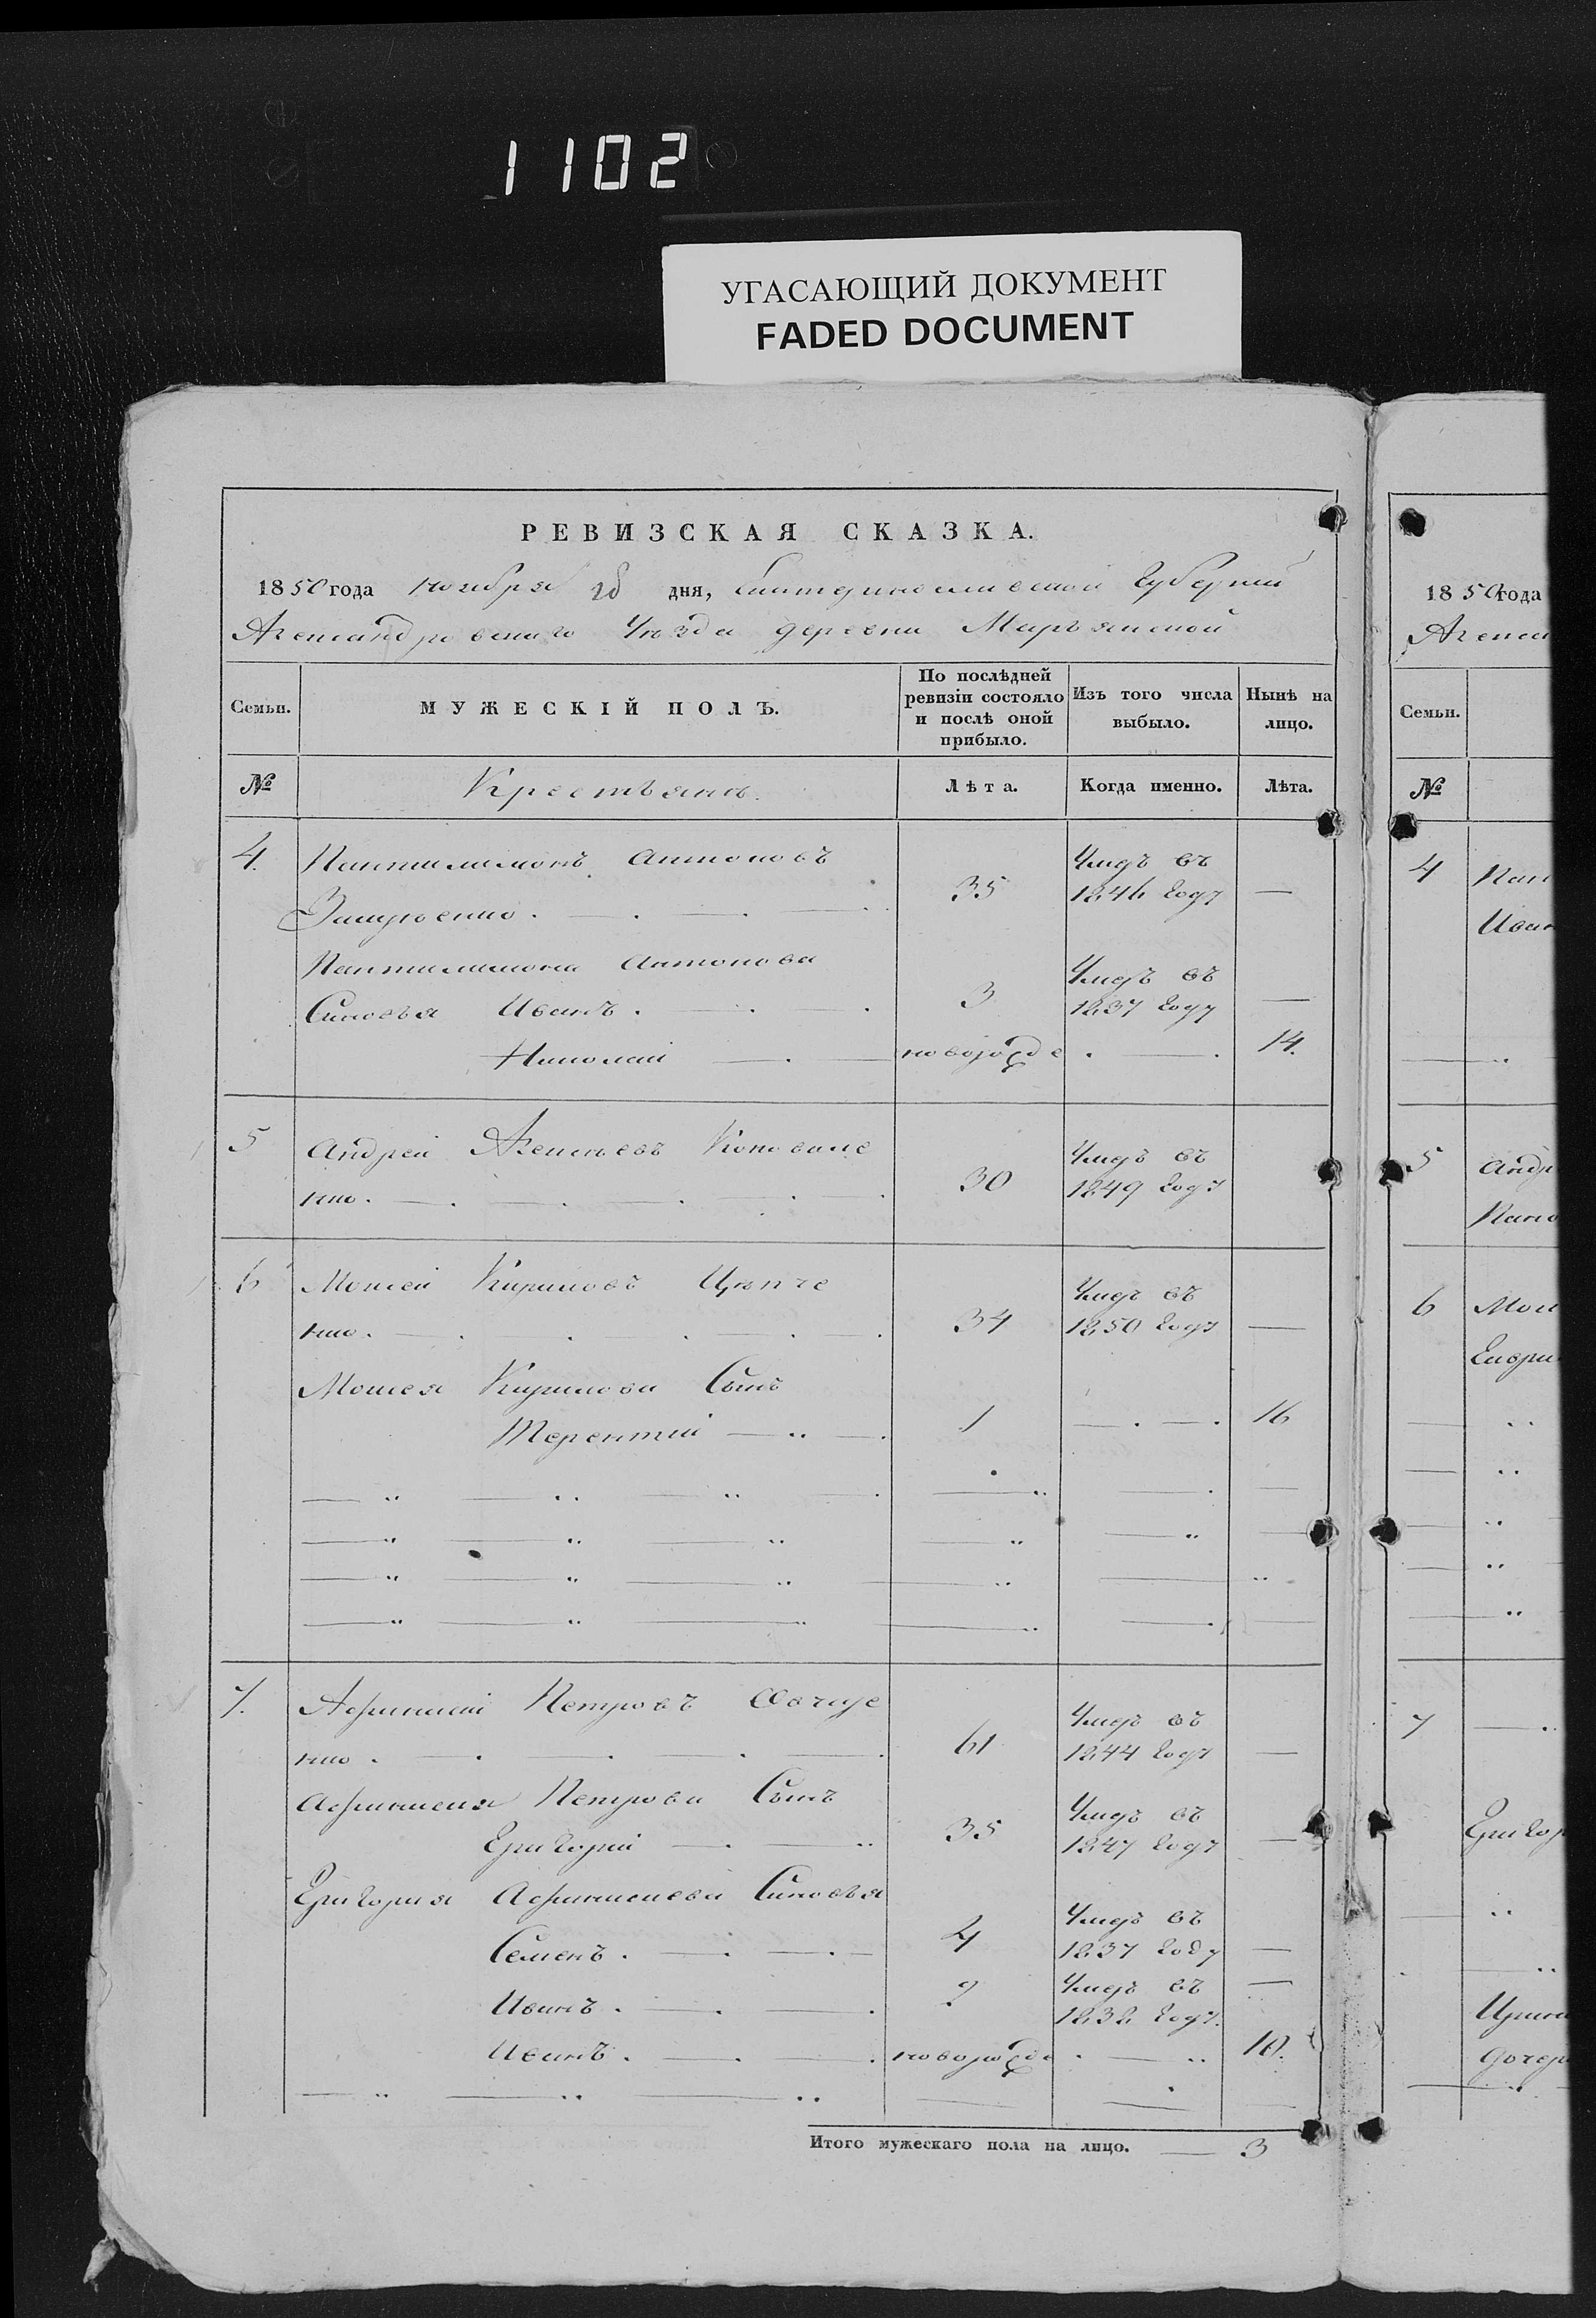 1102
УГАСАЮЩИЙ ДОКУМЕНТ
FADED DOCUMENT
РЕВИЗСКАЯ СКАЗКА.
1850 года ноября дня, Екатеринославской Губерніи
Александровскаго Уѣзда деревни Марьянской
Семьи.
МУЖЕСКІЙ ПОЛЪ.
По послѣдней ревизіи состояло и послѣ оной прибыло.
Изъ того числа выбыло.
Нынѣ на лицо.
№ Крестьяне. Лѣта. Когда именно. Лѣта.
4. Пантилимонъ Антоновъ Умеръ въ
35 1846 году —
Пантилимона Антонова Умеръ въ
Синовья Иванъ. 3 1837 году —
Николай новорожде 14.
5 Андрей Алексѣевъ Коновале Умеръ въ
нко. 30 1849 году
6 Мойсей Кириловъ Цѣпче Умеръ въ
нко. 34 1850 году —
Мойсея Кирилова Сынъ
Терентій 1 16
7. Афанасій Петровъ Овчаре Умеръ въ
нко. 61 1844 году —
Афанасия Петрова Сынъ Умеръ въ
Григорій 35 1847 году —
Григория Афанасиева Синовья Умеръ въ
Семенъ. 4 1837 году —
Иванъ. 2 Умеръ въ —
1838 году.
Иванъ. новорожде 10.
Итого мужескаго пола на лицо. — 3
1850 года
Семьи.
№
4
Иван
5 Андр
6 Мои
7
Григор
Ирина
дочер